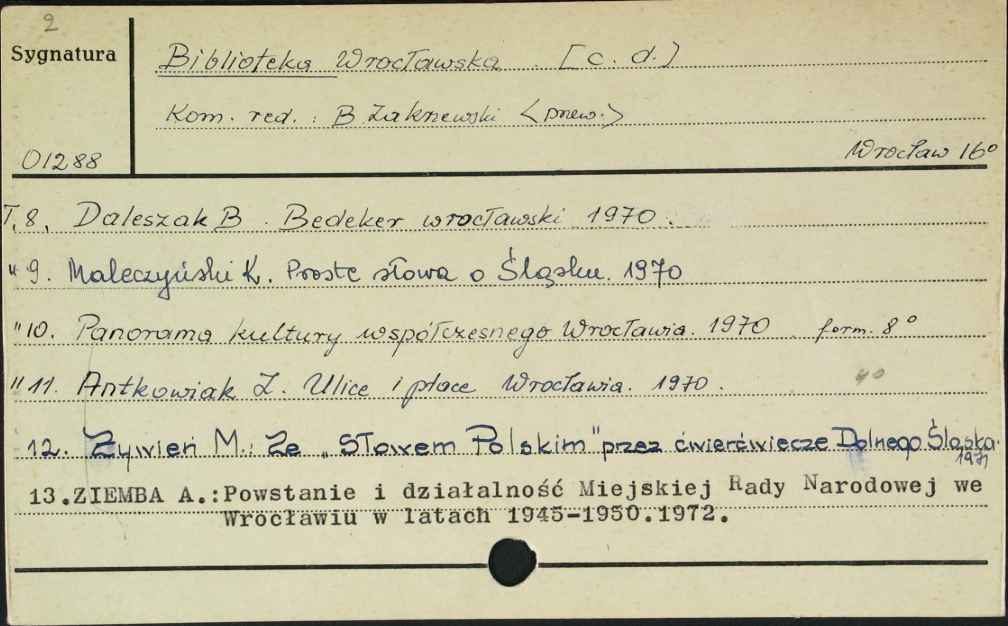 2
Sygnatura
Biblioteka Wrocławska [c. d.]
Kom. red. : B Zakrzewski <przew.>
01288
Wrocław 16°
T.8. Daleszak B. Bedeker wrocławski 1970.
" 9. Maleczyński K. Proste słowa o Śląsku. 1970
" 10. Panorama kultury współczesnego Wrocławia. 1970 form. 8°
" 11. Antkowiak Z. Ulice i place Wrocławia. 1970.
12. Żywień M.: Ze „Słowem Polskim" przez ćwierćwiecze Dolnego Śląska.
1971
13.ZIEMBA A.:Powstanie i działalność Miejskiej Rady Narodowej we
Wrocławiu w latach 1945-1950.1972.